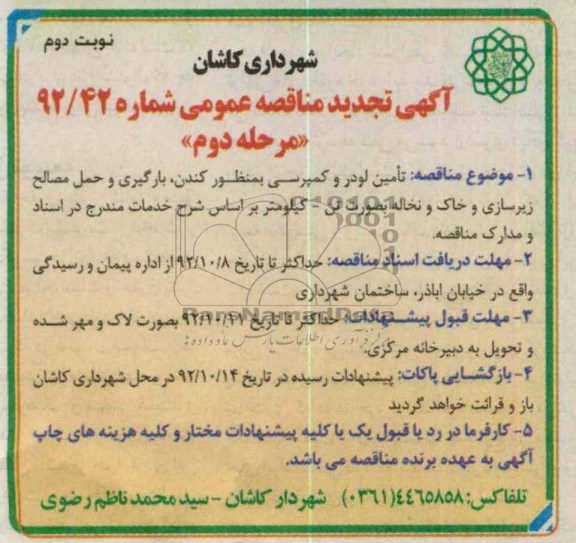 نوبت دوم
شهرداری کاشان
آگهی تجدید مناقصه عمومی شماره ۹۲/۴۲
«مرحله دوم»
۱- موضوع مناقصه: تأمین لودر و کمپرسی بمنظور کندن، بارگیری و حمل مصالح
زیرسازی و خاک و نخاله بصورت تن - کیلومتر بر اساس شرح خدمات مندرج در اسناد
و مدارک مناقصه.
۲- مهلت دریافت اسناد مناقصه: حداکثر تا تاریخ ۹۲/۱۰/۸ از اداره پیمان و رسیدگی
واقع در خیابان اباذر، ساختمان شهرداری
۳- مهلت قبول پیشنهادات: حداکثر تا تاریخ ۹۲/۱۰/۱۱ بصورت لاک و مهر شده
و تحویل به دبیرخانه مرکزی.
۴- بازگشایی پاکات: پیشنهادات رسیده در تاریخ ۹۲/۱۰/۱۴ در محل شهرداری کاشان
باز و قرائت خواهد گردید
۵- کارفرما در رد یا قبول یک یا کلیه پیشنهادات مختار و کلیه هزینه های چاپ
آگهی به عهده برنده مناقصه می باشد.
تلفاکس: ۴۴۶۵۸۵۸ (۰۳۶۱) شهردار کاشان - سید محمد ناظم رضوی
ParsNamadData